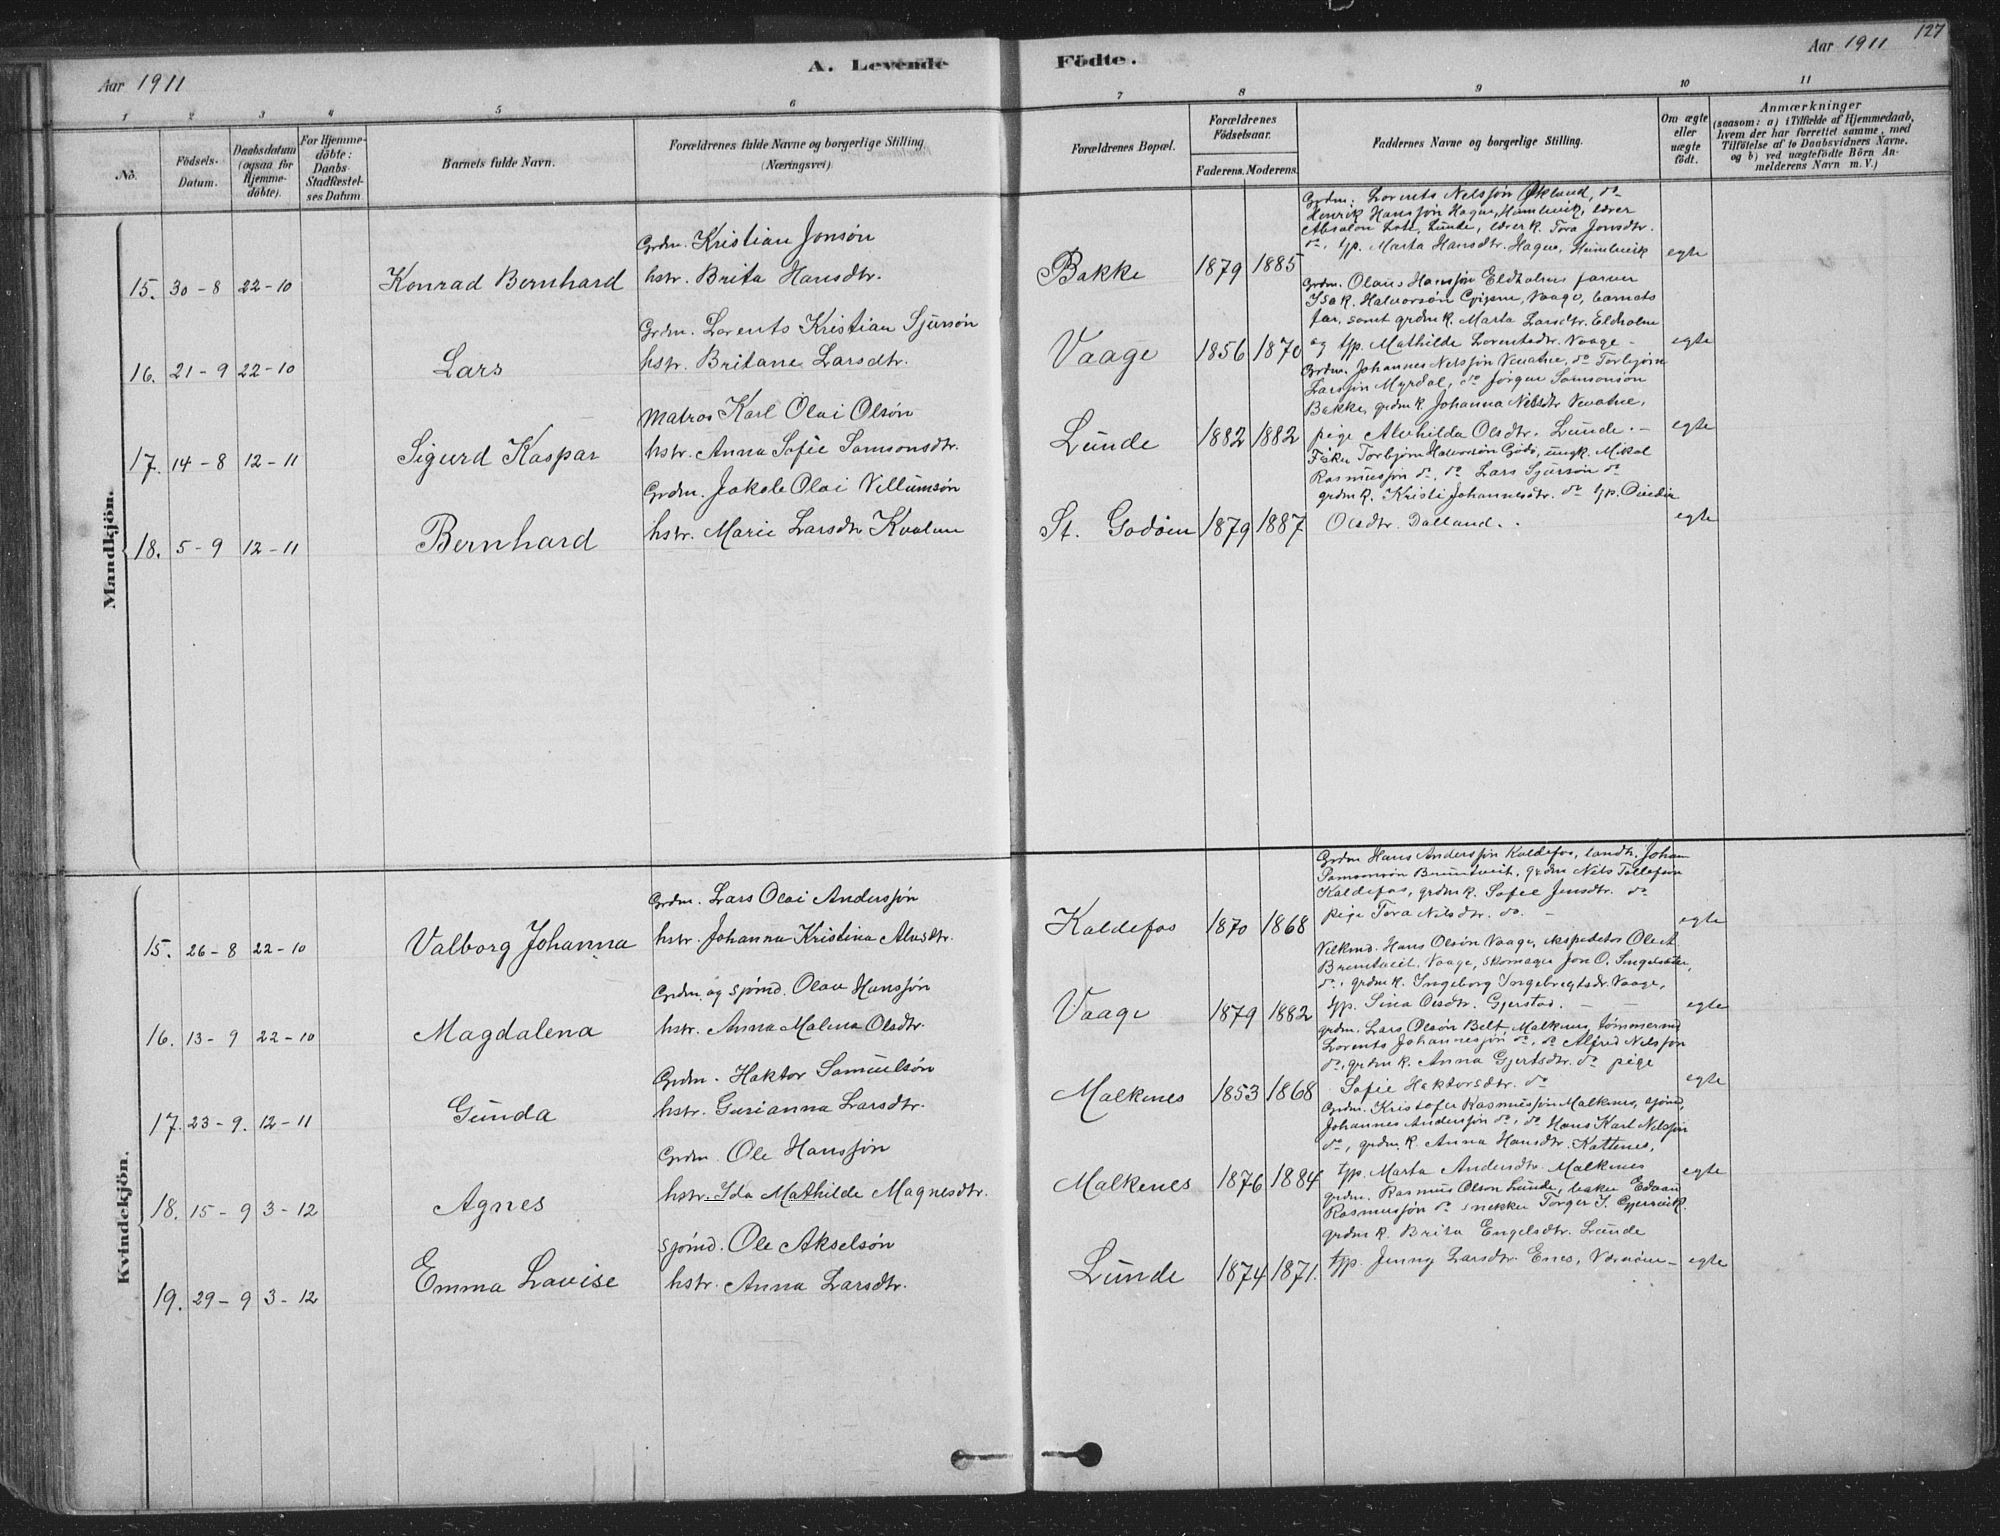 Aar 1911
A. Levende
Födte.
Aar 1911
127
1
2
3
4
5
6
7
8
9
10
11
No.
Födsels-
Datum.
Daabsdatum
(ogsaa for
Hjemme-
döbte).
For Hjemme-
döbte:
Daabs-
Stadfæstel-
ses Datum.
Barnets fulde Navn.
Forældrenes fulde Navne og borgerlige Stilling.
(Næringsvei).
Forældrenes Bopæl.
Forældrenes
Födselsaar.
Faderens. Moderens.
Faddernes Navne og borgerlige Stilling.
Om ægte
eller
uægte
födt.
Anmærkninger
(saasom: a) i Tilfælde af Hjemmedaab,
hvem der har forrettet samme, med
Tilföielse af to Daabsvidners Navne.
og b) ved uægtefödte Börn An-
melderens Navn m. V.)
Mandkjön.
15. 30-8 22-10 Konrad Bernhard
Grdm. Kristian Jonsøn
hstr. Brita Hansdtr.
Bakke 1879 1885
Grdm. Lorents Nelssøn Økland, do
Henrik Hanssøn Hagen, lærer
Absalon Lunde, lærer k. Tora Jonsdtr.
do, tjp. Marta Hansdtr. Hagen,
egte
16. 21-9 22-10 Lars
Grdm. Lorents Kristian Sjursøn
hstr. Britane Larsdtr.
Vaage 1856 1870
Grdm. Olaus Hanssøn Eldholm, farver
Isak Halvorsøn Vaage, barnets
far, samt grdm k. Marta Larsdtr. Eldholm
og tjp. Mathilde Lorentsdtr. Vaage -
egte
17. 14-8 12-11 Sigurd Kaspar
Matros Karl Olai Olsøn
hstr. Anna Sofie Samsonsdtr.
Lunde 1882 1882
Grdm. Johannes Nelssøn do Torbjørn
Larssøn Myrdal, do Jørgen Samsonsøn
Bakke, grdm k. Johanna Nelsdtr
pige Alvhilda Olsdtr. Lunde. -
egte
18. 5-9 12-11 Bernhard
Grdm. Jakob Olai Villumsøn
hstr. Marie Larsdtr Kvalum
St. Godøen 1879 1887
Fisker Torbjørn Halvorsøn Godø, ungk. Mikal
Rasmussøn do, do Lars Sjursøn do
grdm k. Kristi Johannesdtr. do tjp.
Olsdtr. Dalland.
egte
Kvindekjön.
15. 26-8 22-10 Valborg Johanna
Grdm. Lars Olai Anderssøn
hstr. Johanna Kristina Alvsdtr.
Kaldefos 1870 1868
Grdm Hans Anderssøn Kaldefos, landh. Johan
Samsonsøn Bruntveit, grdm Nils Tollefsøn
Kaldefos, grdm k. Sofie Jensdtr. do
pige Tora Nilsdtr. do. -
egte
16. 13-9 22-10 Magdalena
Grdm. og sjømd. Olav Hanssøn
hstr. Anna Malena Olsdtr.
Vaage 1879 1882
Hans Olsøn Vaage, ekspeditør Ole A.
Bruntveit, Vaage, skomager Jon O.
do, grdm k. Ingeborg Ingebregtsdtr. Vaage,
tjp. Sina Olsdtr. Gjerstad. -
egte
17. 23-9. 12-11 Gunda
Grdm. Haktor Samuelsøn
hstr. Gurianna Larsdtr.
Malkenes 1853 1868
grdm. Lars Olsøn Belt, Malknes, tømmermd
Lorents Johannessøn do, do Alfred Nelssøn
do, grdm k. Anna Gjertsdtr. do pige
Sofie Haktorsdtr. do
egte
18. 15-9 3-12 Agnes
Grdm. Ole Hanssøn
hstr. Ida Mathilde Magnesdtr.
Malkenes 1876 1884
Grdm. Kristofer Rasmussøn Malkenes, sjømd,
Johannes Anderssøn do, do Hans Karl Nelssøn
do, grdm k. Anna Hansdtr. Kattenes,
tjp. Marta Andersdtr. Malkenes
egte
19. 29-9 3-12 Emma Lovise
Sjømd. Ole Akselsøn
hstr. Anna Larsdtr.
Lunde 1874 1871.
grdm. Rasmus Olson Lunde, baker Edvan
Rasmussøn do snekker Torger I.
grdm k. Brita Engelsdtr. Lunde
tjp. Jenny Larsdtr. Enes, -
egte